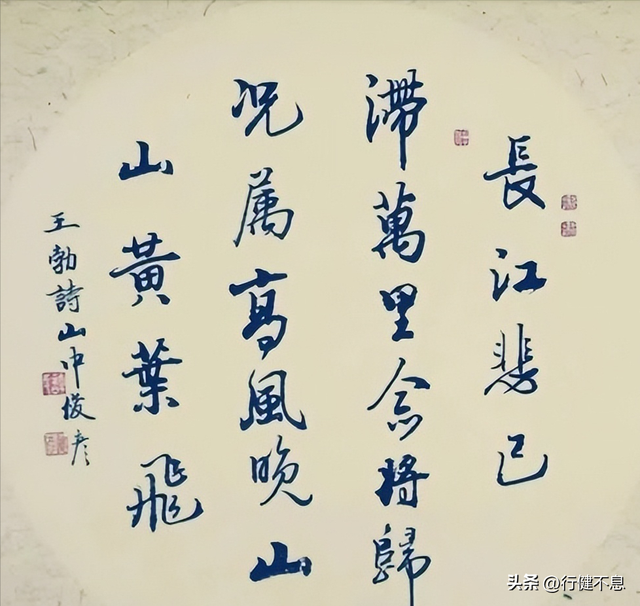 長江悲已
滯萬里念將歸
况属高風晚山
山黃葉飛
王勃詩山中俊彥
头条 @行健不息